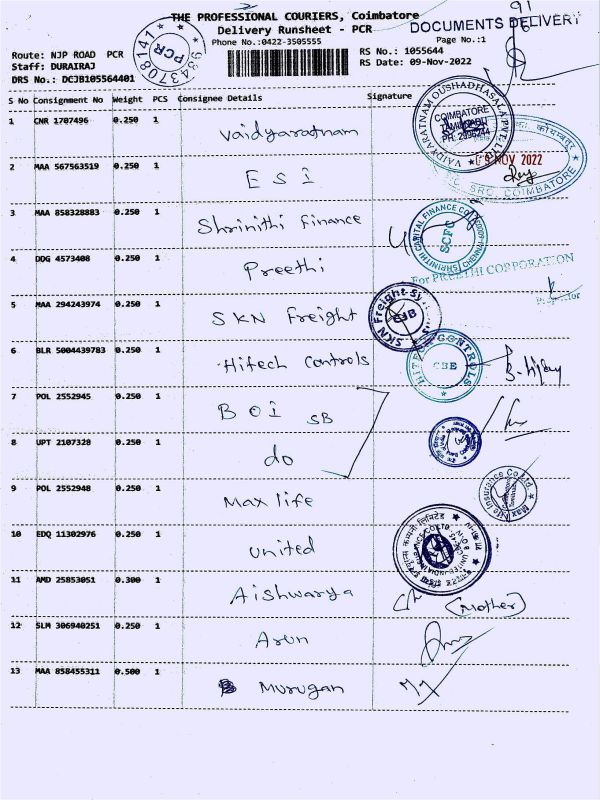 THE PROFESSIONAL COURIERS, Coimbatore
Delivery Runsheet - PCR
Phone No.:0422-3505555
DOCUMENTS DELIVERY
91
Page No.:1
Route: NJP ROAD PCR
RS No.: 1055644
Staff: DURAIRAJ
RS Date: 09-Nov-2022
DRS No.: DCJB105564401
9843708141
PCR
S No Consignment No Weight PCS Consignee Details Signature
1 CNR 1707496 0.250 1 Vaidyaratnam
VAIDYARATNAM OUSHADHASALA PVT. LTD
COIMBATORE
TAMILNADU
2 MAA 567563519 0.250 1 ESI
09 NOV 2022
SRO, COIMBATORE
3 MAA 858328883 0.250 1 Shrinithi Finance
SHRINITHI CAPITAL FINANCE CO
SCFC
4 DDG 4573408 0.250 1 Preethi
For PREETHI CORPORATION
5 MAA 294243974 0.250 1 SKN Freight
SKN Freight Sy
6 BLR 5004439783 0.250 1 Hitech Controls
HITECH CONTROLS
CBE
7 POL 2552945 0.250 1 BOI SB
8 UPT 2107328 0.250 1 do
9 POL 2552948 0.250 1 Max life
Max Life Insurance Co Ltd
10 EDQ 11302976 0.250 1 United
11 AMD 25853051 0.300 1 Aishwarya
(Mother)
12 SLM 306940251 0.250 1 Arun
13 MAA 858455311 0.500 1 Murugan